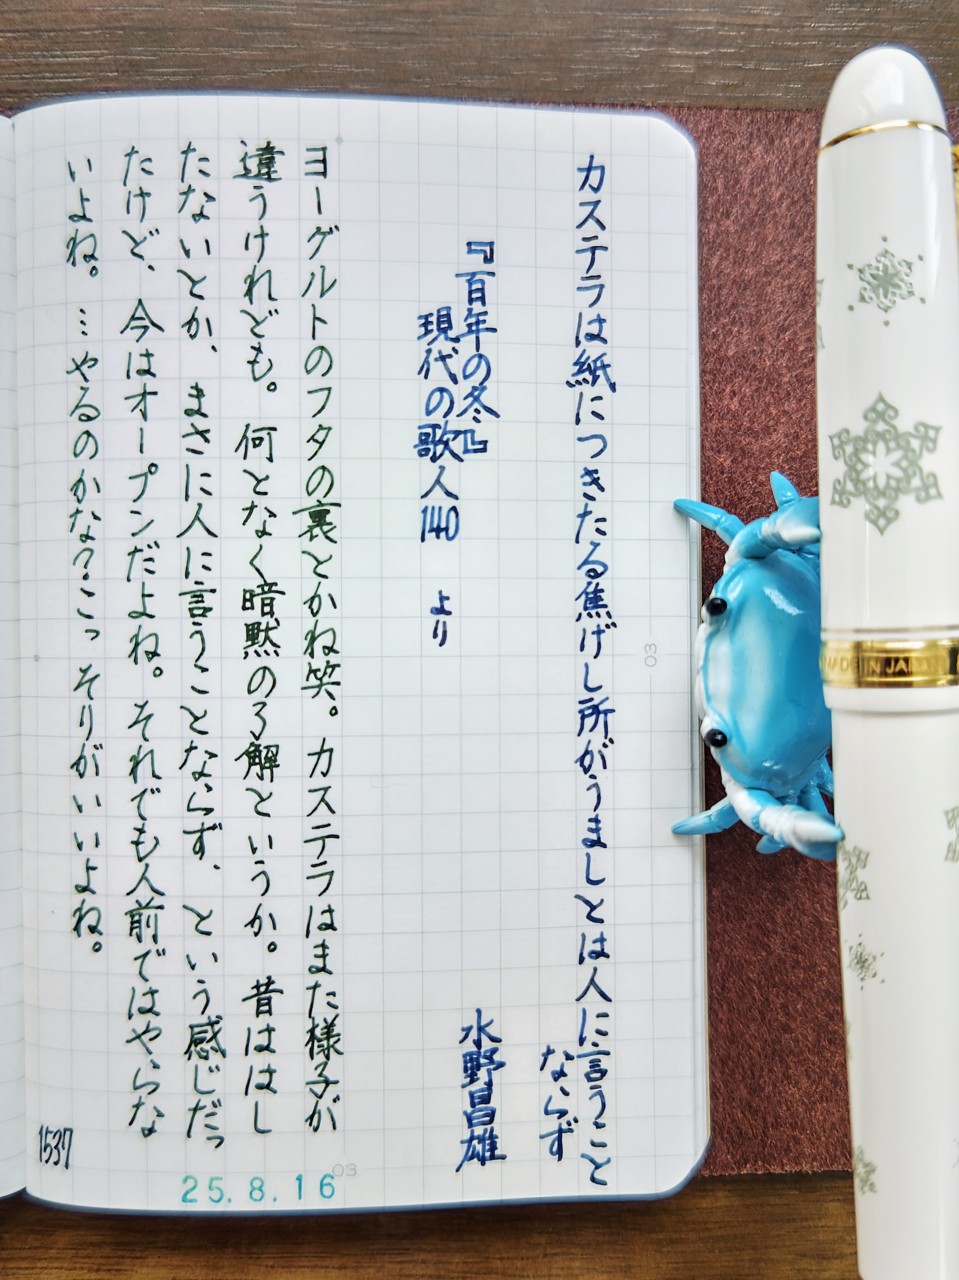 カステラは紙につきたる焦げし所がうましとは人に言うこと
ならず
水野昌雄
『百年の冬』
現代の歌人140 より
ヨーグルトのフタの裏とかね笑。カステラはまた様子が
違うけれども。何となく暗黙の了解というか。昔ははし
たないとか、まさに人に言うことならず、という感じだっ
たけど、今はオープンだよね。それでも人前ではやらな
いよね。…やるのかな?こっそりがいいよね。
1537
25.8.16
03
03
MADE IN JAPAN